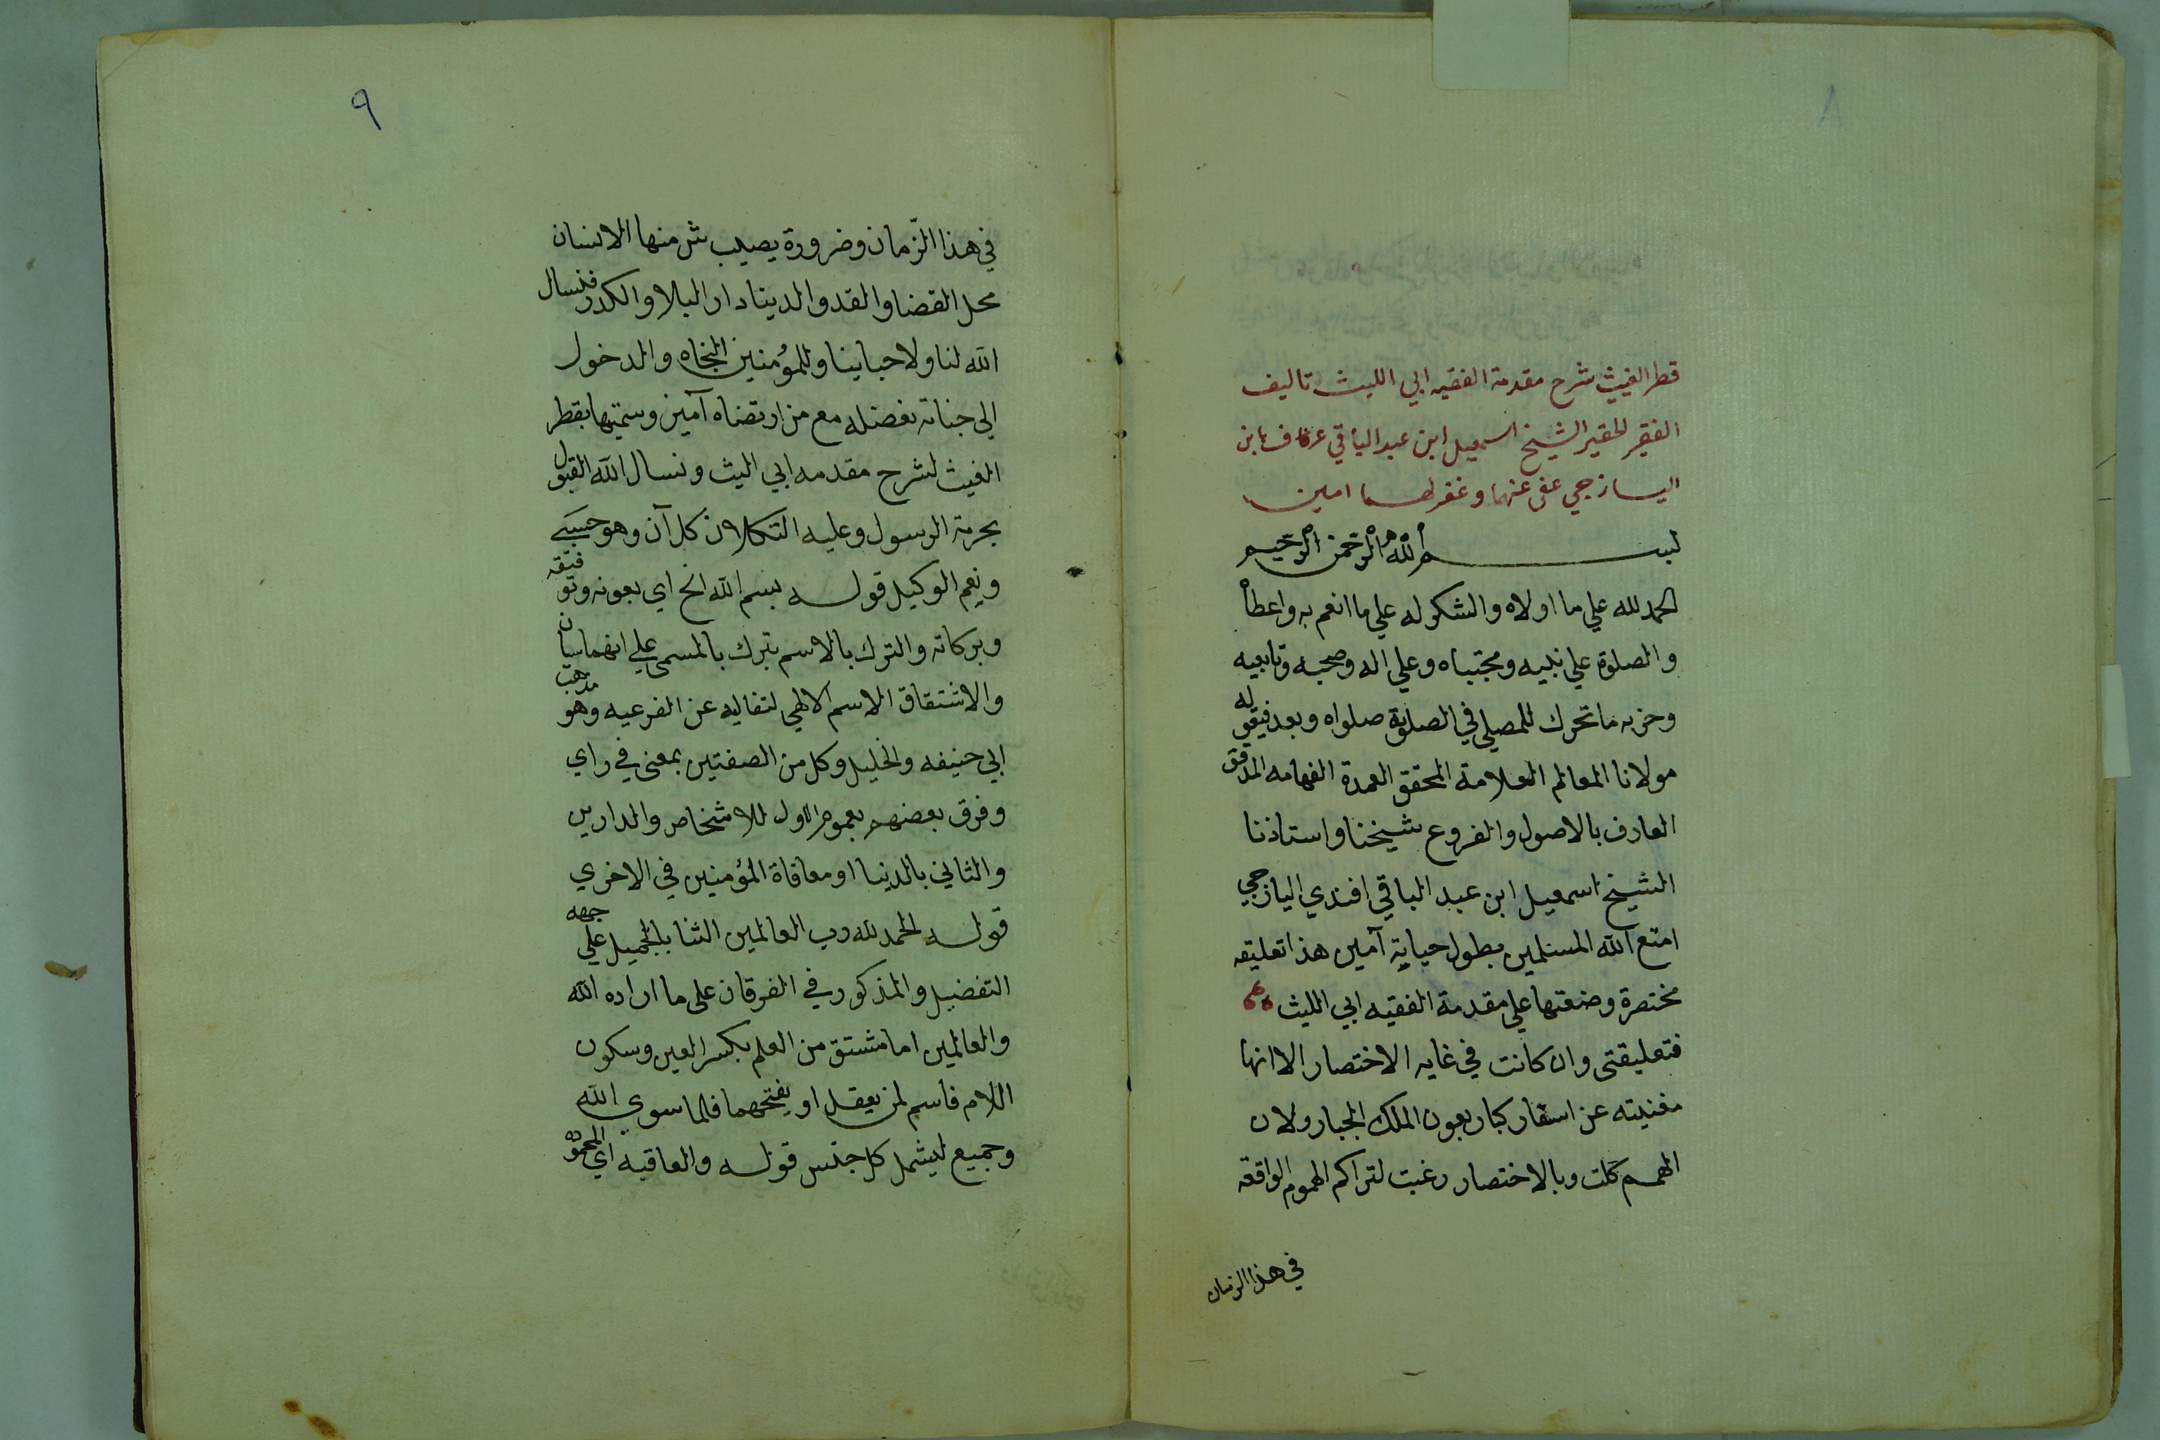 ٨
قطر الغيث شرح مقدمة الفقيه ابي الليث تاليف
الفقير الحقير الشيخ اسمعيل ابن عبد الباقي عرف بابن
اليازجي عفى عنهما وغفر لهما امين
بسم الله الرحمن الرحيم
الحمد لله علي ما اولاه والشكر له علي ما انعم به واعطاه
والصلوة علي نبيه ومجتباه وعلي اله وصحبه وتابعيه
وحزبه ما تحرك للمصلي في الصلوة صلواه وبعد فيقوله
مولانا العالم العلامة المحقق العمدة الفهامه المدقق
العارف بالاصول والفروع شيخنا واستاذنا
الشيخ اسمعيل ابن عبد الباقي افندي اليازجي
امتع الله المسلمين بطول حياية آمين هذا تعليقه
مختصرة وضعتها علي مقدمة الفقيه ابي الليث
فتعليقتى وان كانت في غايه الاختصار الا انها
مغنيته عن اسفار كبار بعون الملك الجبار ولان
الهمم كلت وبالاختصار رغبت لتراكم الهموم الواقعه
في هذا الزمان
٩
في هذا الزّمان وضرورة يصيب منها الانسان
محل القضا والقد والدينا دار البلا والكدر فنسال
الله لنا ولاحباينا وللمؤمنين النجاه والدخول
الي جناته بفضله مع من ارتضاه آمين وسميتها بقطر
الغيث لشرح مقدمه ابي اليث ونسال الله القبول
بحرمة الرسول وعليه التكلان كل آن وهو حسبي
ونعم الوكيل قوله بسم الله الخ اي بعونه وتوفيقه
وبركاته والترك بالاسم تبرك بالمسمى علي انهما سيان
والاشتقاق الاسم الالهي لتغاليه عن الفرعيه وهو مذهب
ابي حنيفه والخليل وكل من الصفتين بمعنى في راي
وفرق بعضهم بعموم الاول للاشخاص والدارين
والثاني بالدنيا او معافاة المؤمنين في الاخري
قوله الحمد لله رب العالمين الثنا بالجميل علي جهه
التفضيل والمذكور في الفرقان على ما اراده الله
والعالمين اما مشتق من العلم بكسر العين وسكون
اللام فاسم لمن يعقل او بفتحهما فلما سوي الله
وجميع ليشمل كل جنس قوله والعاقبه اي المحموده